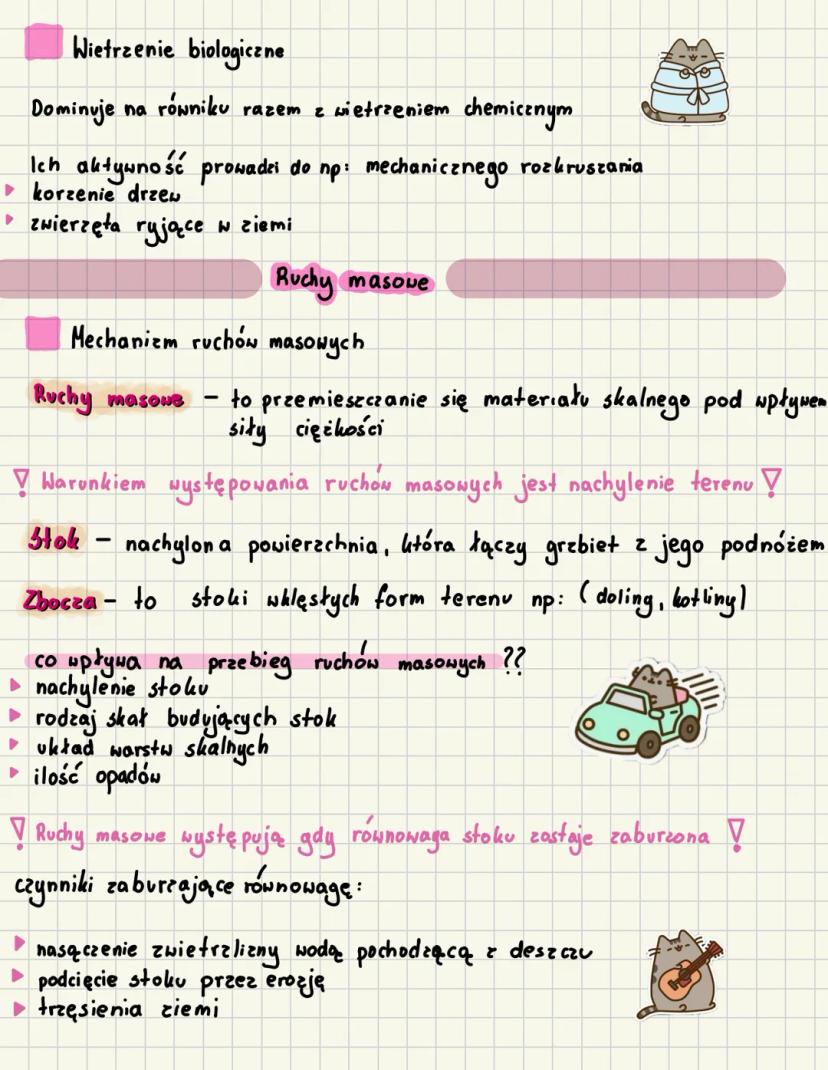 Wietrzenie biologiczne
Dominuje na równiku razem z wietrzeniem chemicznym
Ich aktywność prowadzi do np: mechanicznego rozkruszania
korzenie drzew
zwierzęta ryjące w ziemi
Ruchy masowe
Mechanizm ruchów masowych
Ruchy masowe – to przemieszczanie się materiału skalnego pod wpływem
siły ciężkości
! Warunkiem występowania ruchów masowych jest nachylenie terenu !
Stok – nachylona powierzchnia, która łączy grzbiet z jego podnóżem
Zbocza – to stoki wklęsłych form terenu np: (doling, kotliny)
co wpływa na przebieg ruchów masowych ??
nachylenie stoku
rodzaj skał budujących stok
układ warstw skalnych
ilość opadów
! Ruchy masowe występują gdy równowaga stoku zostaje zaburzona !
czynniki zaburzające równowagę:
nasączenie zwietrzlizny wodą pochodzącą z deszczu
podcięcie stoku przez erozję
trzęsienia ziemi